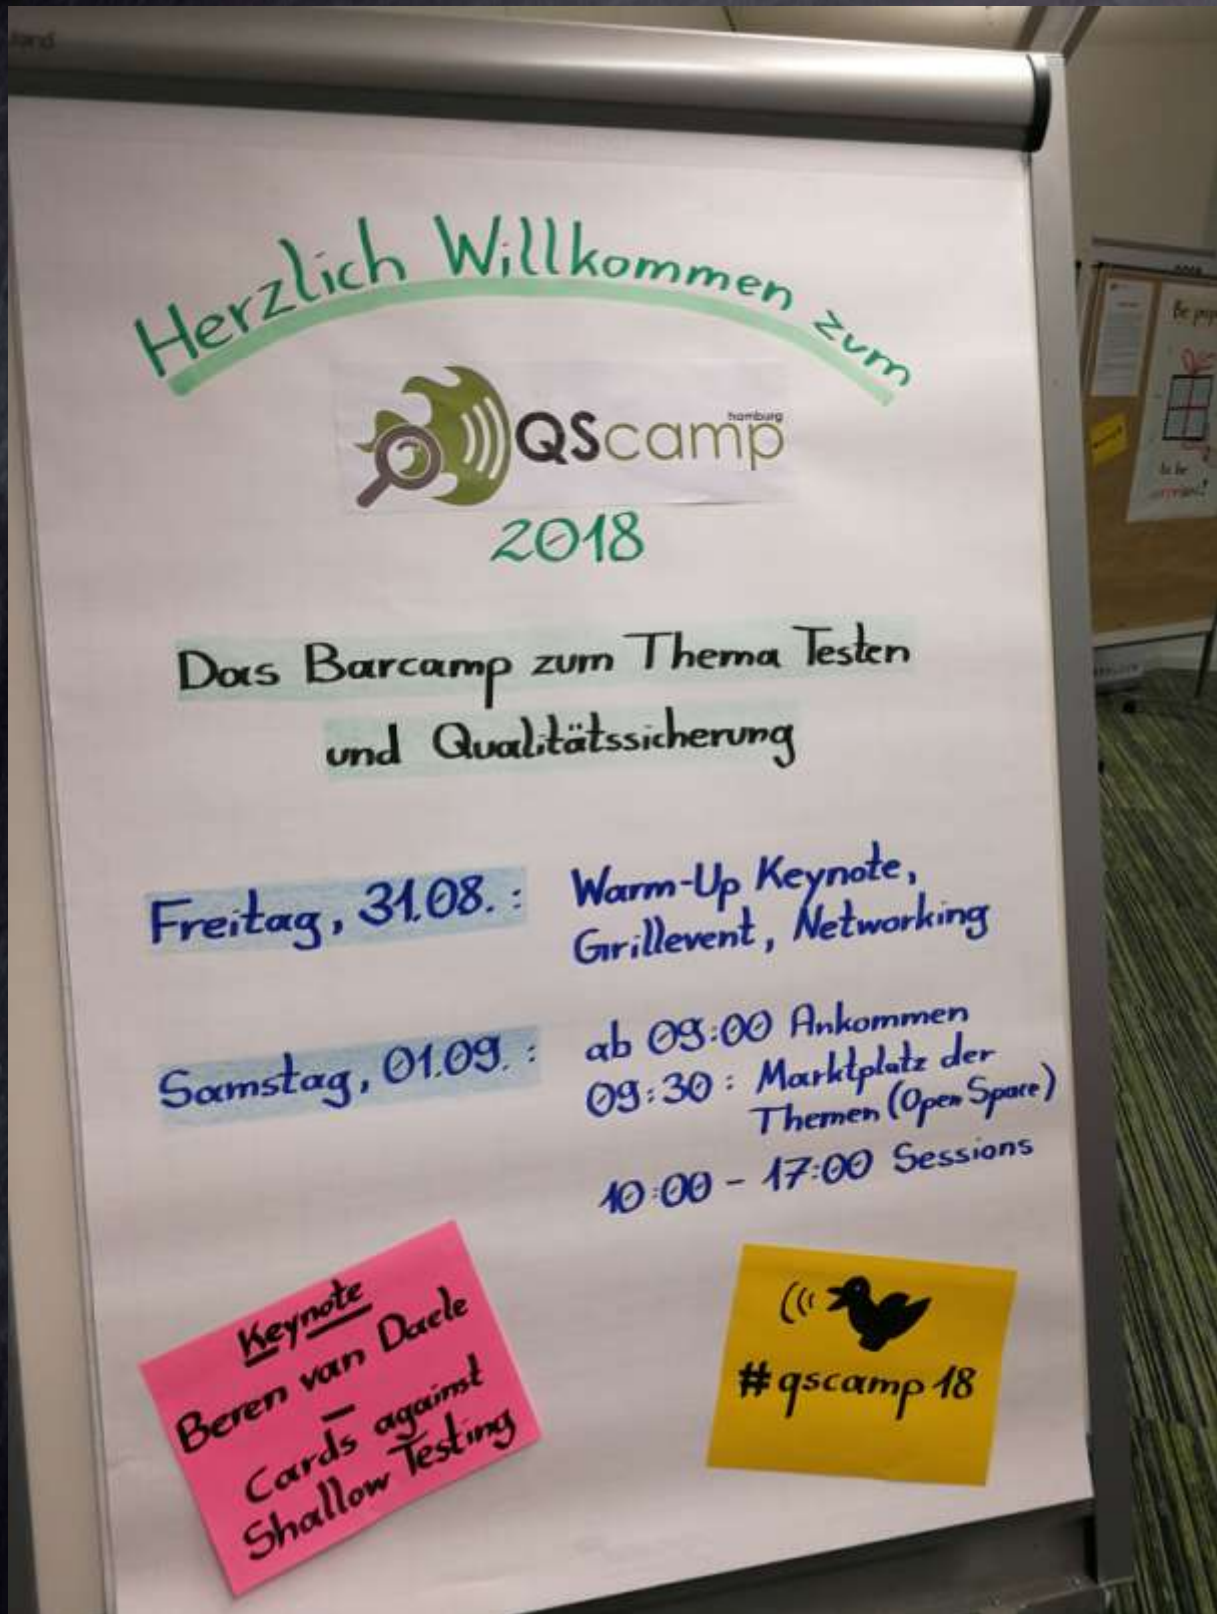 Herzlich Willkommen zum
QScamp
hamburg
2018
Das Barcamp zum Thema Testen
und Qualitätssicherung
Freitag, 31.08.:
Warm-Up Keynote,
Grillevent, Networking
Samstag, 01.09.:
ab 09:00 Ankommen
09:30: Marktplatz der
Themen (Open Space)
10:00 - 17:00 Sessions
Keynote
Beren van Daele
-
Cards against
Shallow Testing
#qscamp18
Be
to be